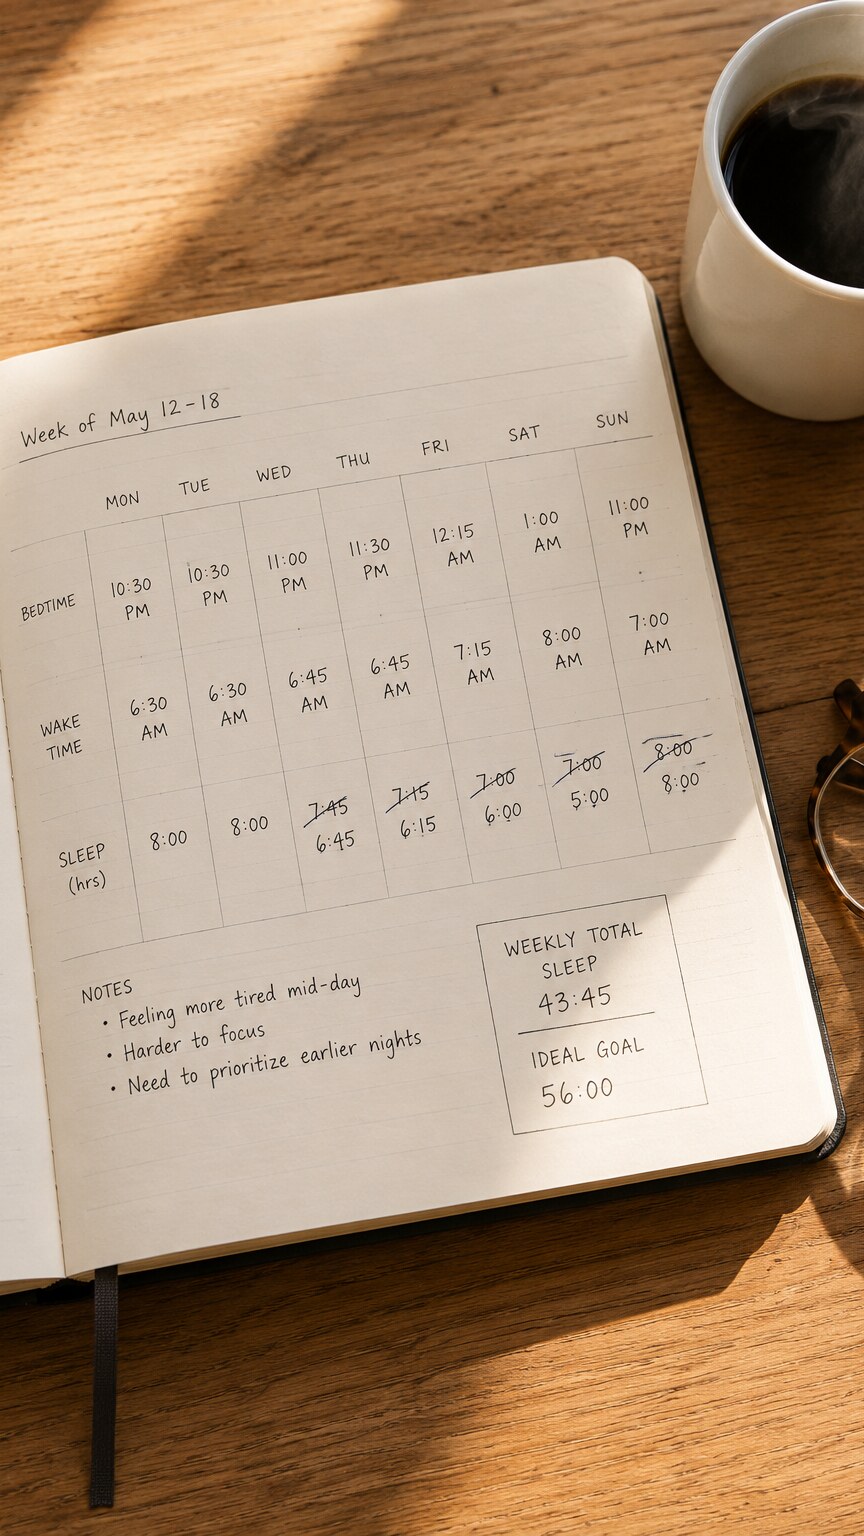 Week of May 12-18
MON TUE WED THU FRI SAT SUN
BEDTIME 10:30 PM 10:30 PM 11:00 PM 11:30 PM 12:15 AM 1:00 AM 11:00 PM
WAKE TIME 6:30 AM 6:30 AM 6:45 AM 6:45 AM 7:15 AM 8:00 AM 7:00 AM
7:45 7:15 7:00 7:00 8:00
SLEEP (hrs) 8:00 8:00 6:45 6:15 6:00 5:00 8:00
NOTES
• Feeling more tired mid-day
• Harder to focus
• Need to prioritize earlier nights
WEEKLY TOTAL
SLEEP
43:45
IDEAL GOAL
56:00